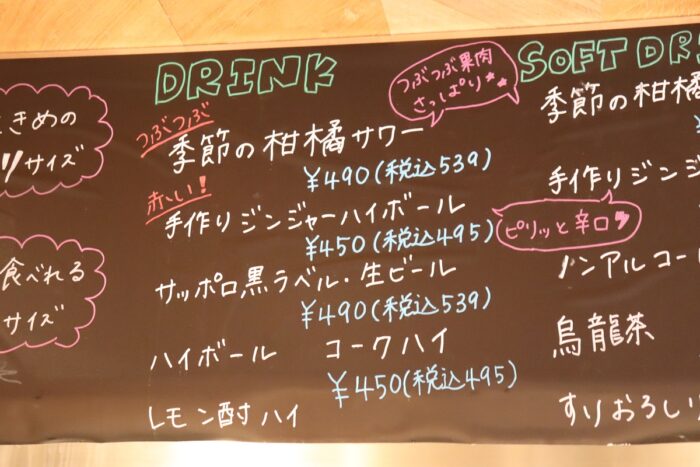 きめの
サイズ
食べれる
サイズ
DRINK
つぶつぶ果肉
さっぱり
つぶつぶ
季節の柑橘サワー
¥490(税込539)
赤〜い!
手作りジンジャーハイボール
¥450(税込495)
ピリッと辛口
サッポロ黒ラベル・生ビール
¥490(税込539)
ハイボール コークハイ
¥450(税込495)
レモン酎ハイ
SOFT DR
季節の柑橘
手作りジンジ
ノンアルコー
烏龍茶
すりおろし